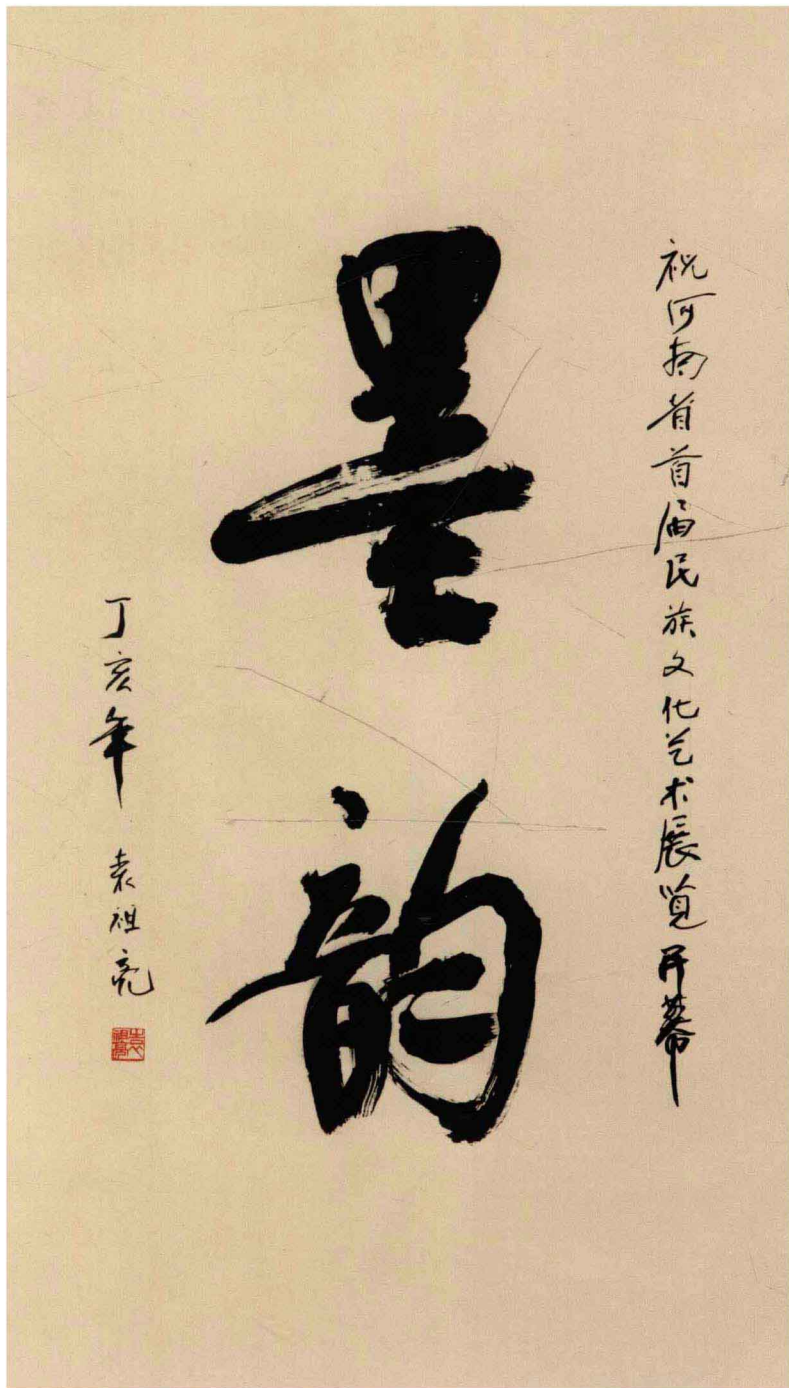 祝河南省首届民族文化艺术展览开幕
墨韵
丁亥年 袁祖亮
袁祖亮